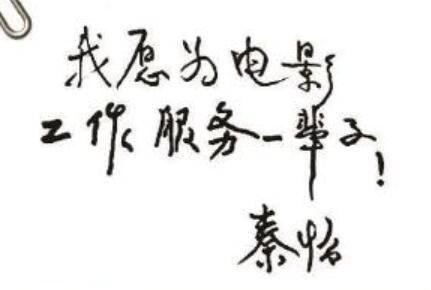 我愿为电影
工作服务一辈子！
秦怡